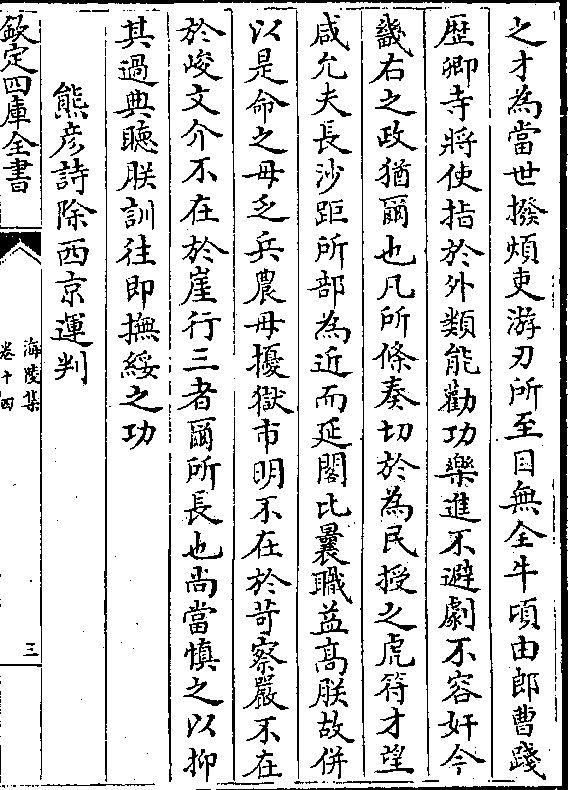 之才為當世撥煩吏游刃所至目無全牛頃由郎曹踐
歴卿寺將使指於外類能勸功樂進不避劇不容奸今
畿右之政猶爾也凡所條奏切於為民授之虎符才望
咸允夫長沙距所部為近而延閣比曩職益髙朕故併
以是命之毋乏兵農毋擾獄市明不在於苛察嚴不在
於峻文介不在於崖行三者爾所長也尚當慎之以抑
其過典聽朕訓往即撫綏之功
熊彦詩除西京運判
欽定四庫全書
海陵集
卷十四
三